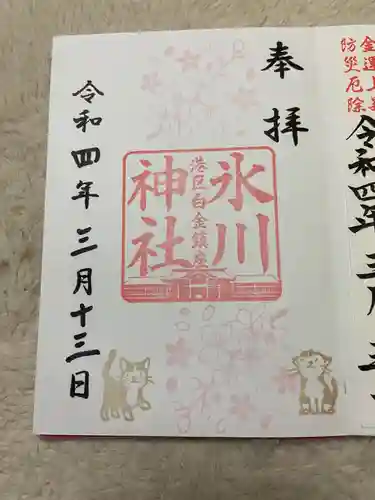 金運上
防災厄除
令和四年 三月
奉拝
氷川
港区白金鎮座
神社
令和四年 三月十三日